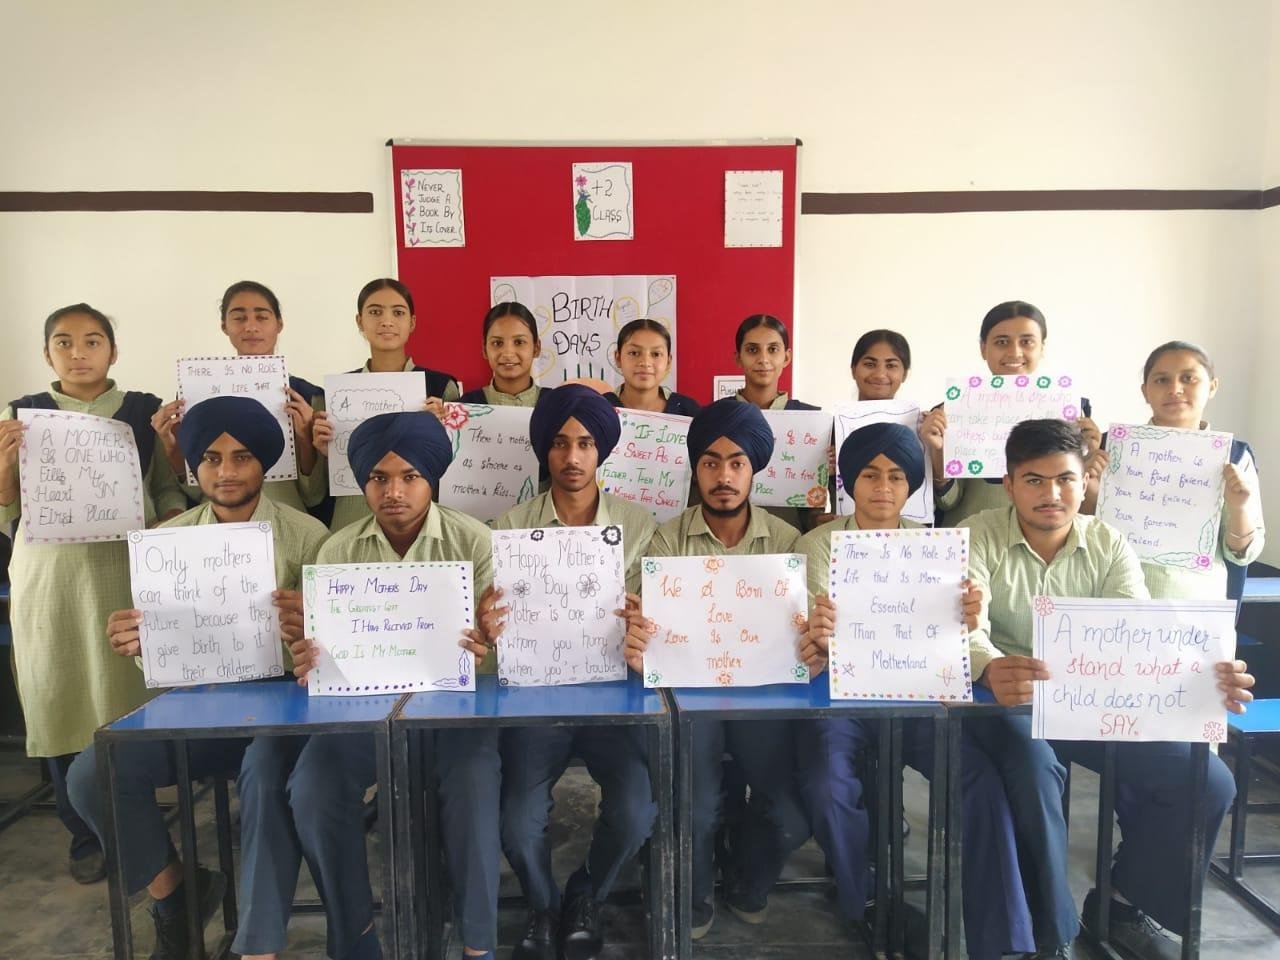 NEVER
JUDGE A
BOOK BY
ITS COVER
+2
CLASS
BIRTH
DAYS
A MOTHER
IS ONE WHO
Fills My
Heart IN
First Place
THERE IS NO ROLE
IN LIFE THAT
A mother
There is nothing
as sincere as
mother's kiss...
IF LOVE
IS SWEET AS A
FLOWER, THEN MY
MOTHER THAT SWEET
Is One
You
In The first
Place
A mother is one who
can take place of all
others but
place no
A mother is
Your first friend,
Your best friend,
Your forever
friend.
Only mothers
can think of the
future because they
give birth to it
their children
HAPPY MOTHER'S DAY
THE GREATEST GIFT
I HAVE RECIVED FROM
GOD IS MY MOTHER
Happy Mother's
Day
Mother is one to
whom you hurry
when you'r trouble
We A Born Of
Love
Love Is Our
mother
There Is No Role In
Life that Is More
Essential
Than That Of
Motherland
A mother under-
stand what a
child does not
SAY.